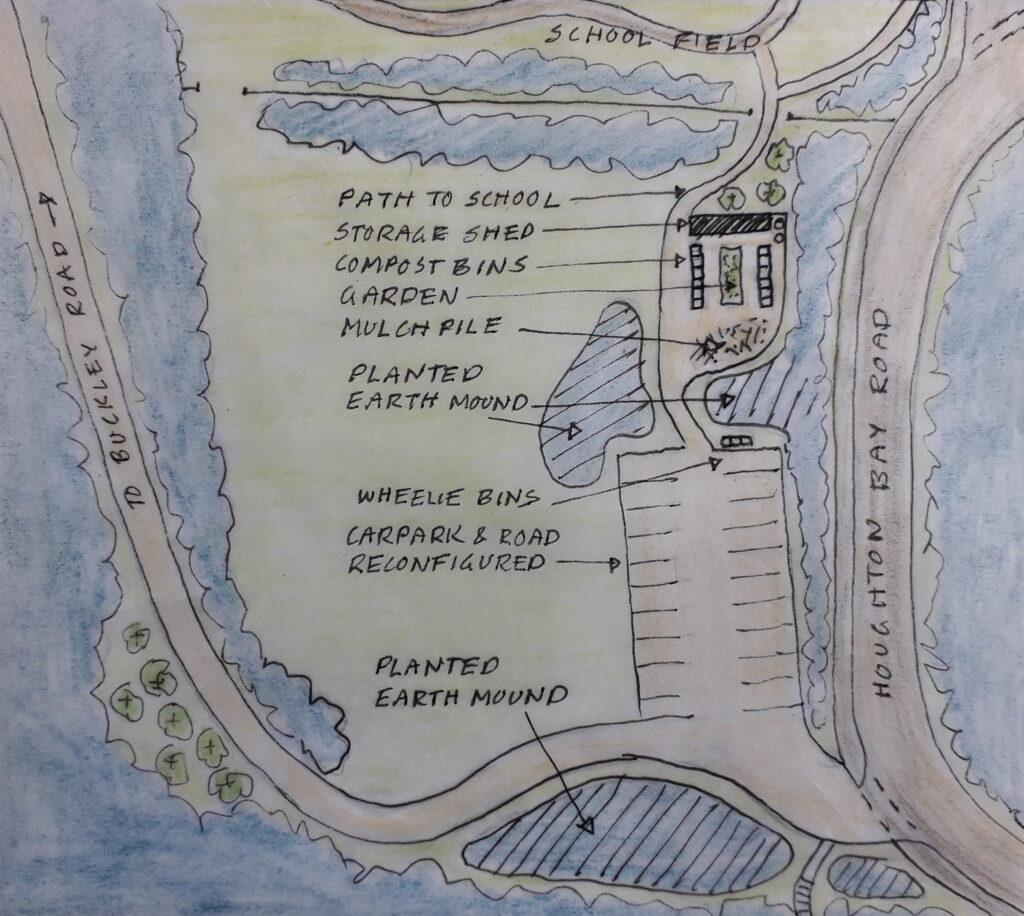 SCHOOL FIELD
PATH TO SCHOOL
STORAGE SHED
COMPOST BINS
GARDEN
MULCH PILE
PLANTED
EARTH MOUND
WHEELIE BINS
CARPARK & ROAD
RECONFIGURED
PLANTED
EARTH MOUND
TO BUCKLEY ROAD
HOUGHTON BAY ROAD